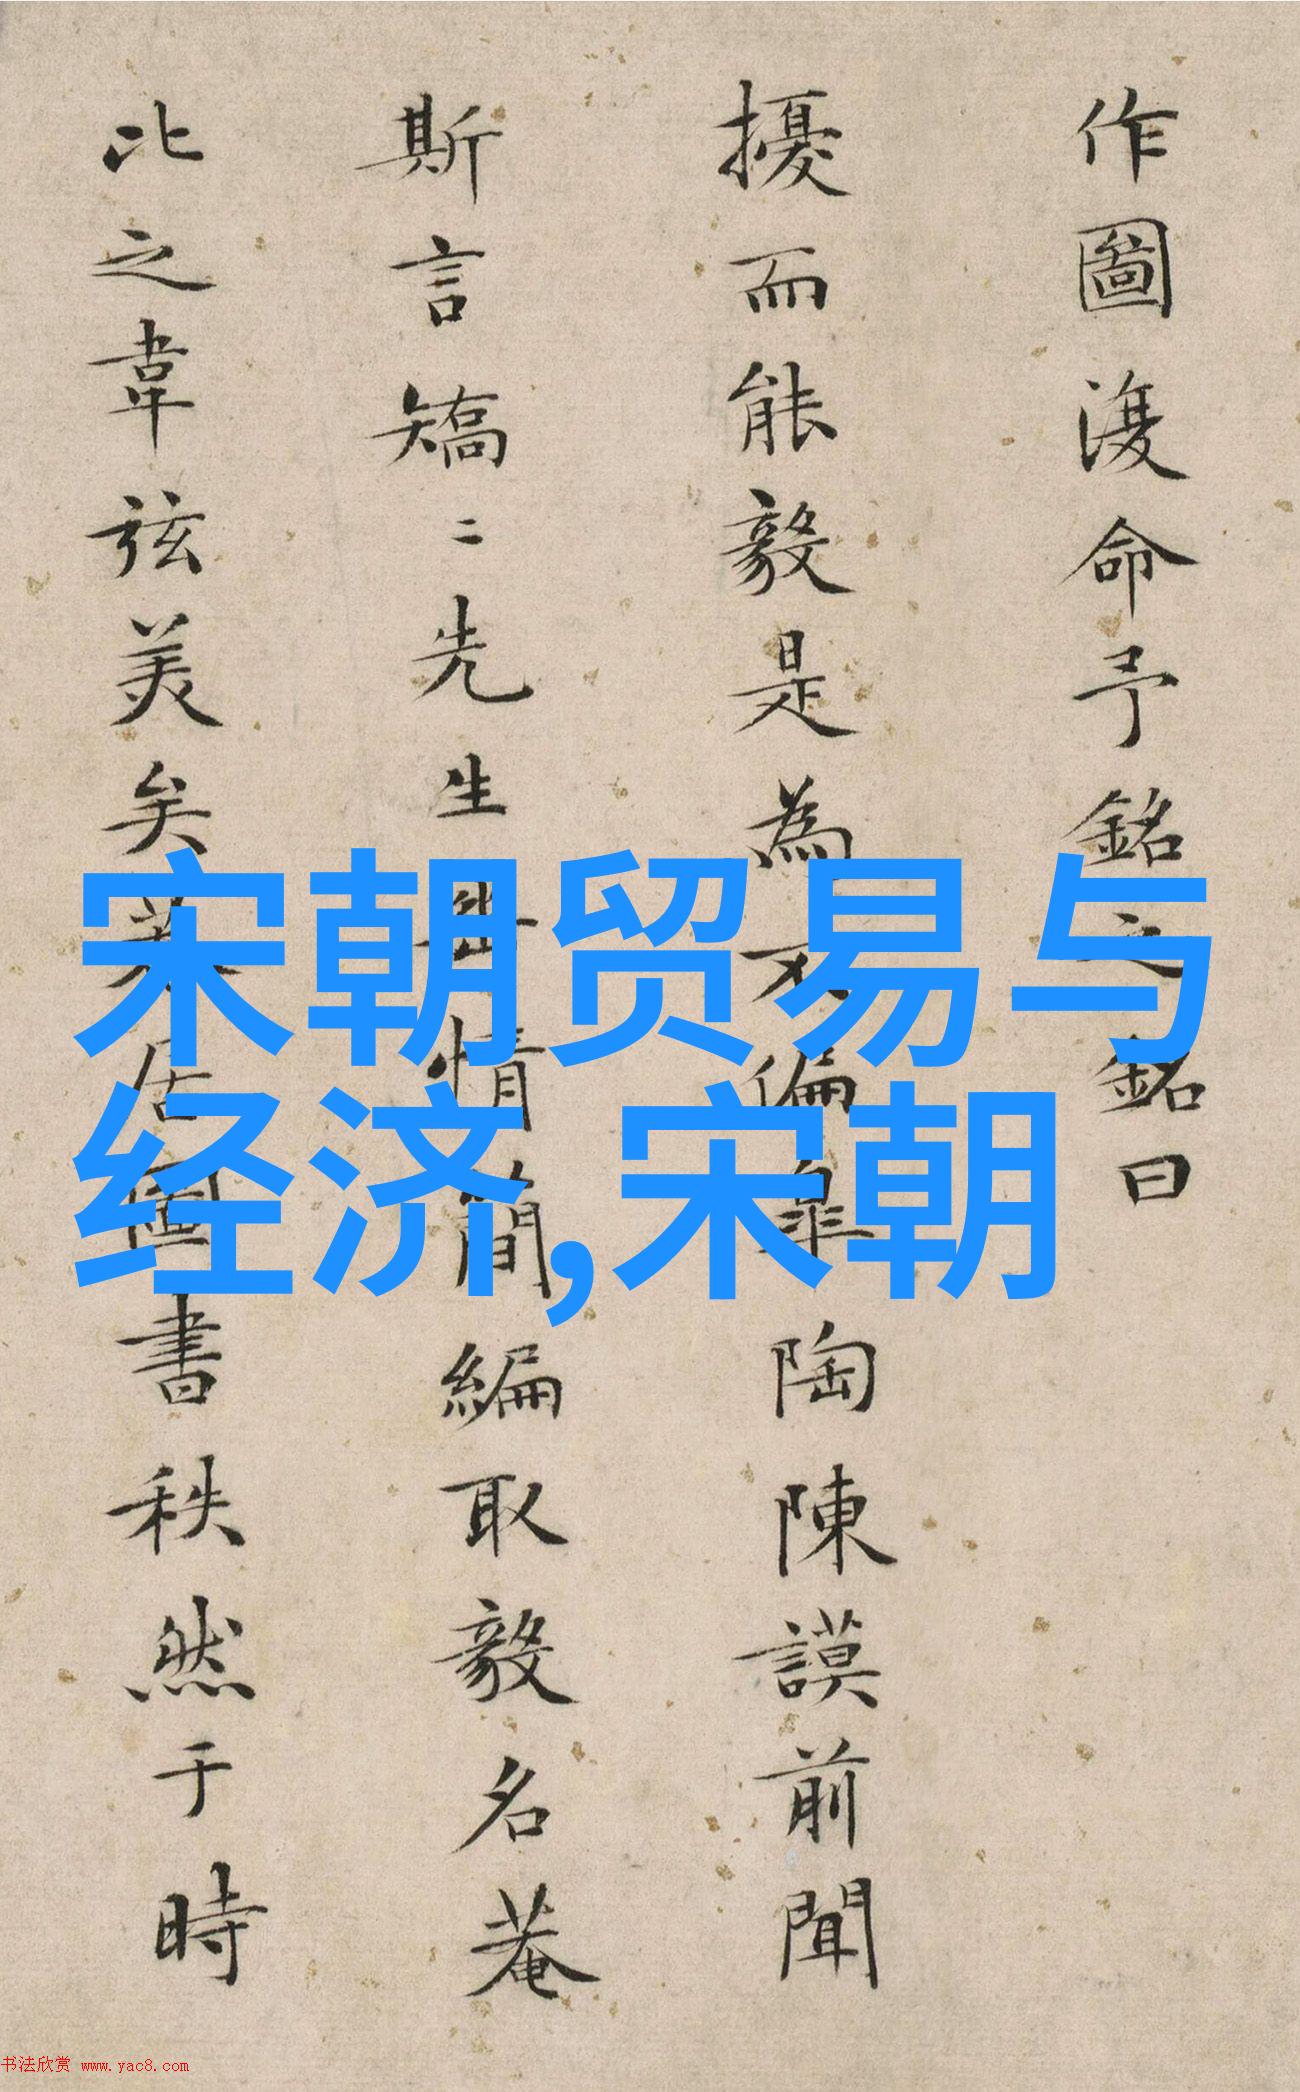 作圖復命予銘之銘曰
擾而能毅是為不偏皐陶陳謨前聞
斯言矯二先生世情簡編取毅名菴
比之韋弦美矣居圖書秩然于時
宋朝贸易与
经济,宋朝
书法欣赏 www.yac8.com